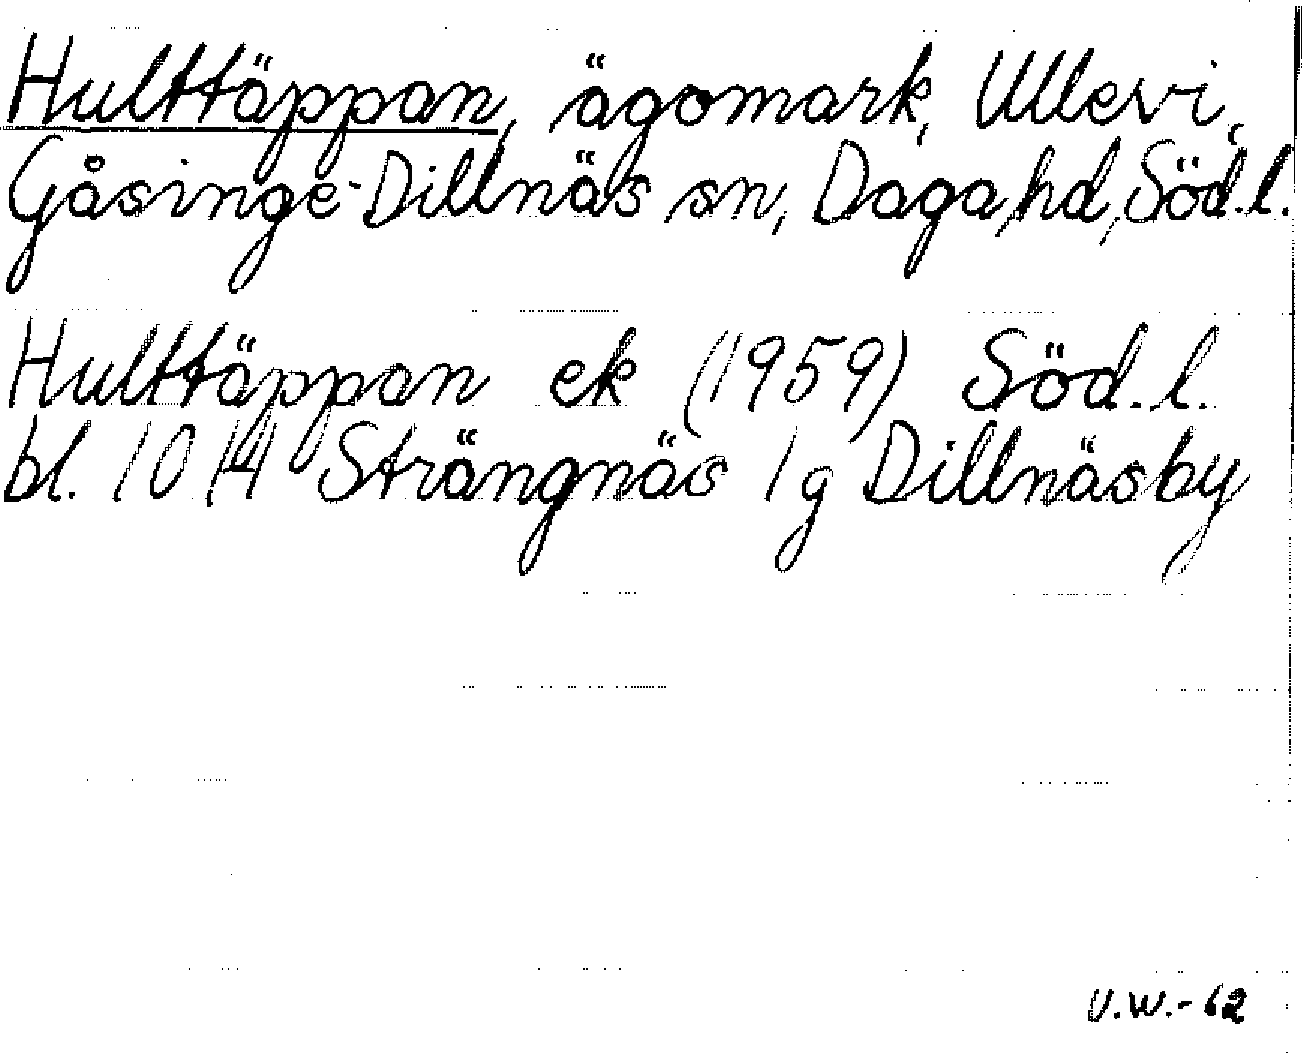 Hulttäppan, ägomark, Ullevi,
Gåsinge-Dillnäs sn, Daga hd, Söd.l.
Hulttäppan ek (1959) Söd.l.
bl. 10 14 Strängnäs 1g Dillnäsby
U.W.-62